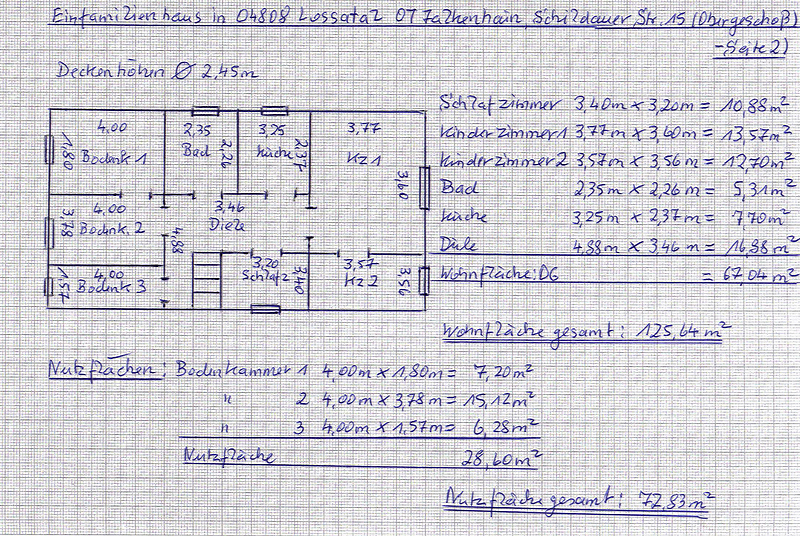 Einfamilienhaus in 04808 Lossatal OT Falkenhain, Schildauer Str. 15 (Obergeschoß)
-Seite 2)
Deckenhöhen Ø 2,45m
4,00
1,80
Bodenk 1
2,35
Bad
2,26
3,25
Küche
2,37
3,77
Kz 1
3,60
4,00
3,78
Bodenk. 2
3,46
Diele
4,88
4,00
1,57
Bodenk 3
3,20
Schlafz
3,40
3,57
Kz 2
3,56
Schlafzimmer 3,40m x 3,20m = 10,88m²
Kinderzimmer 1 3,77m x 3,60m = 13,57m²
Kinderzimmer 2 3,57m x 3,56m = 12,70m²
Bad 2,35m x 2,26m = 5,31m²
Küche 3,25m x 2,37m = 7,70m²
Diele 4,88m x 3,46m = 16,88m²
Wohnfläche: DG = 67,04m²
Wohnfläche gesamt: 125,64m²
Nutzflächen: Bodenkammer 1 4,00m x 1,80m = 7,20m²
" 2 4,00m x 3,78m = 15,12m²
" 3 4,00m x 1,57m = 6,28m²
Nutzfläche 28,60m²
Nutzfläche gesamt: 72,83m²